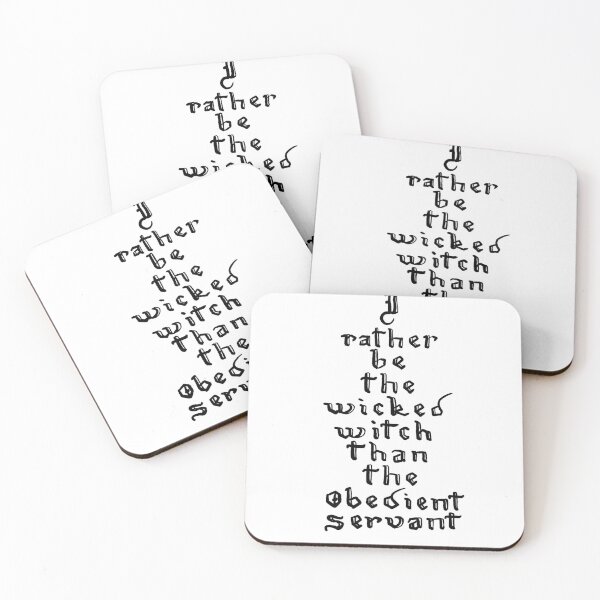 I
rather
be
the
wicked
I
rather
be
the
wicked
witch
than
I
rather
be
the
wicked
witch
than
the
I
rather
be
the
wicked
witch
than
the
Obedient
Servant